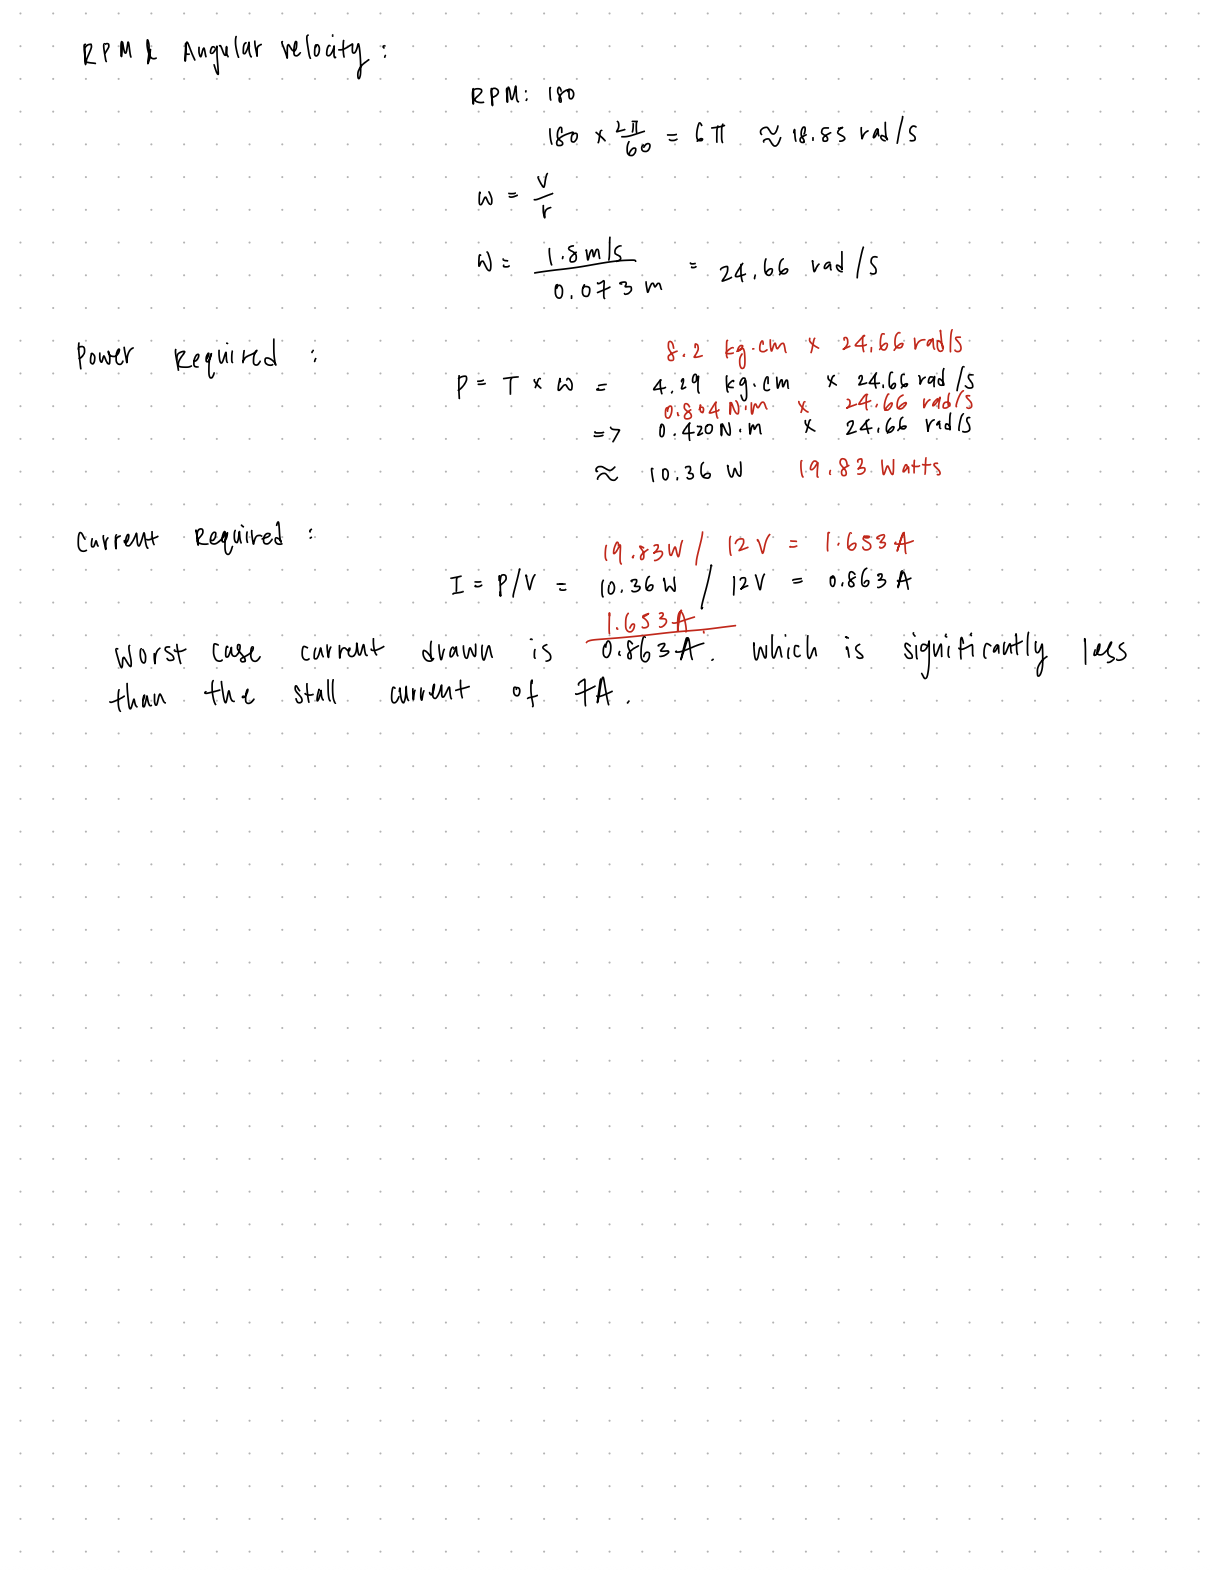 RPM & Angular velocity :
RPM: 180
180 × 2π/60 = 6π ≈ 18.85 rad/s
ω = v/r
ω = 1.8 m/s / 0.073 m = 24.66 rad/s
8.2 kg.cm × 24.66 rad/s
Power Required :
P = T × ω = 4.29 kg.cm × 24.66 rad/s
0.804 N.m × 24.66 rad/s
=> 0.420 N.m × 24.66 rad/s
≈ 10.36 W 19.83 Watts
Current Required :
19.83W / 12V = 1.653A
I = P/V = 10.36 W / 12V = 0.863 A
1.653A
Worst case current drawn is 0.863A. which is significantly less
than the stall current of 7A.